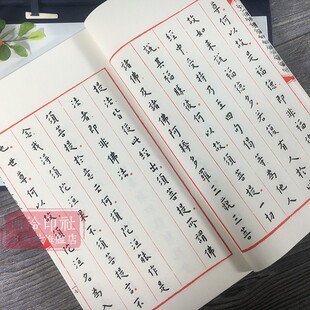 尊何以故是福德
故如来說福德多若復有人於
經中受持乃至四句偈等為他人
說其福勝彼何以故須菩提一切
諸佛及諸佛阿耨多羅三藐三菩
提法皆從此經出須菩提所謂佛
法者即非佛法
須菩提於意云何須陀洹能作是
念我得須陀洹果不須菩提言不
也世尊何以故須陀洹名為入
泠印社